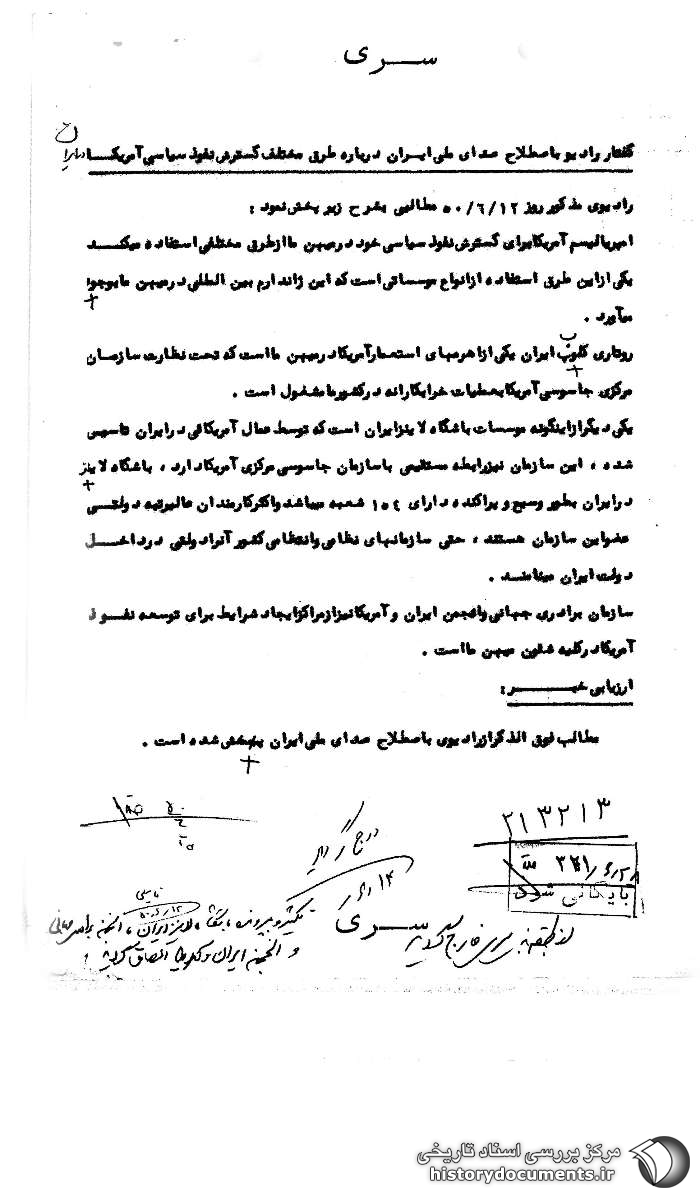 سری
گفتار رادیو باصطلاح صدای ملی ایران درباره طرق مختلف گسترش نفوذ سیاسی آمریکا در ایران
رادیوی مذکور روز ۵۰/۶/۱۲ مطالبی بشرح زیر پخش نمود :
امپریالیسم آمریکا برای گسترش نفوذ سیاسی خود در میهن ما از طرق مختلفی استفاده میکند
یکی از این طرق استفاده از انواع موسساتی است که این ژاندارم بین المللی در میهن ما بوجود
میآورد .
روتاری کلوپ ایران یکی از اهرمهای استعمار آمریکا در میهن ما است که تحت نظارت سازمان
مرکزی جاسوسی آمریکا بعملیات خرابکارانه در کشور ما مشغول است .
یکی دیگر از اینگونه موسسات باشگاه لاینز ایران است که توسط عمال آمریکائی در ایران تاسیس
شده ، این سازمان نیز رابطه مستقیمی با سازمان جاسوسی مرکزی آمریکا دارد ، باشگاه لاینز
در ایران بطور وسیع و پراکنده دارای ۱۰۴ شعبه میباشد و اکثر کارمندان عالیرتبه دولتی
عضو این سازمان هستند ، حتی سازمانهای نظامی و انتظامی کشور آنرا دولتی در داخل
دولت ایران مینامند .
سازمان برادری جهانی و انجمن ایران و آمریکا نیز از مراکز ایجاد شرایط برای توسعه نفوذ
آمریکا در کلیه شئون میهن ما است .
ارزیابی خبر :
مطالب فوق الذکر از رادیوی باصطلاح صدای ملی ایران پخش شده است .
۲۱۳۲۱۳
بایگانی شود
درج گردید
سری
از طبقه بندی سری خارج گردید
و انجمن ایران و آمریکا الصاق گردید
مرکز بررسی اسناد تاریخی
historydocuments.ir